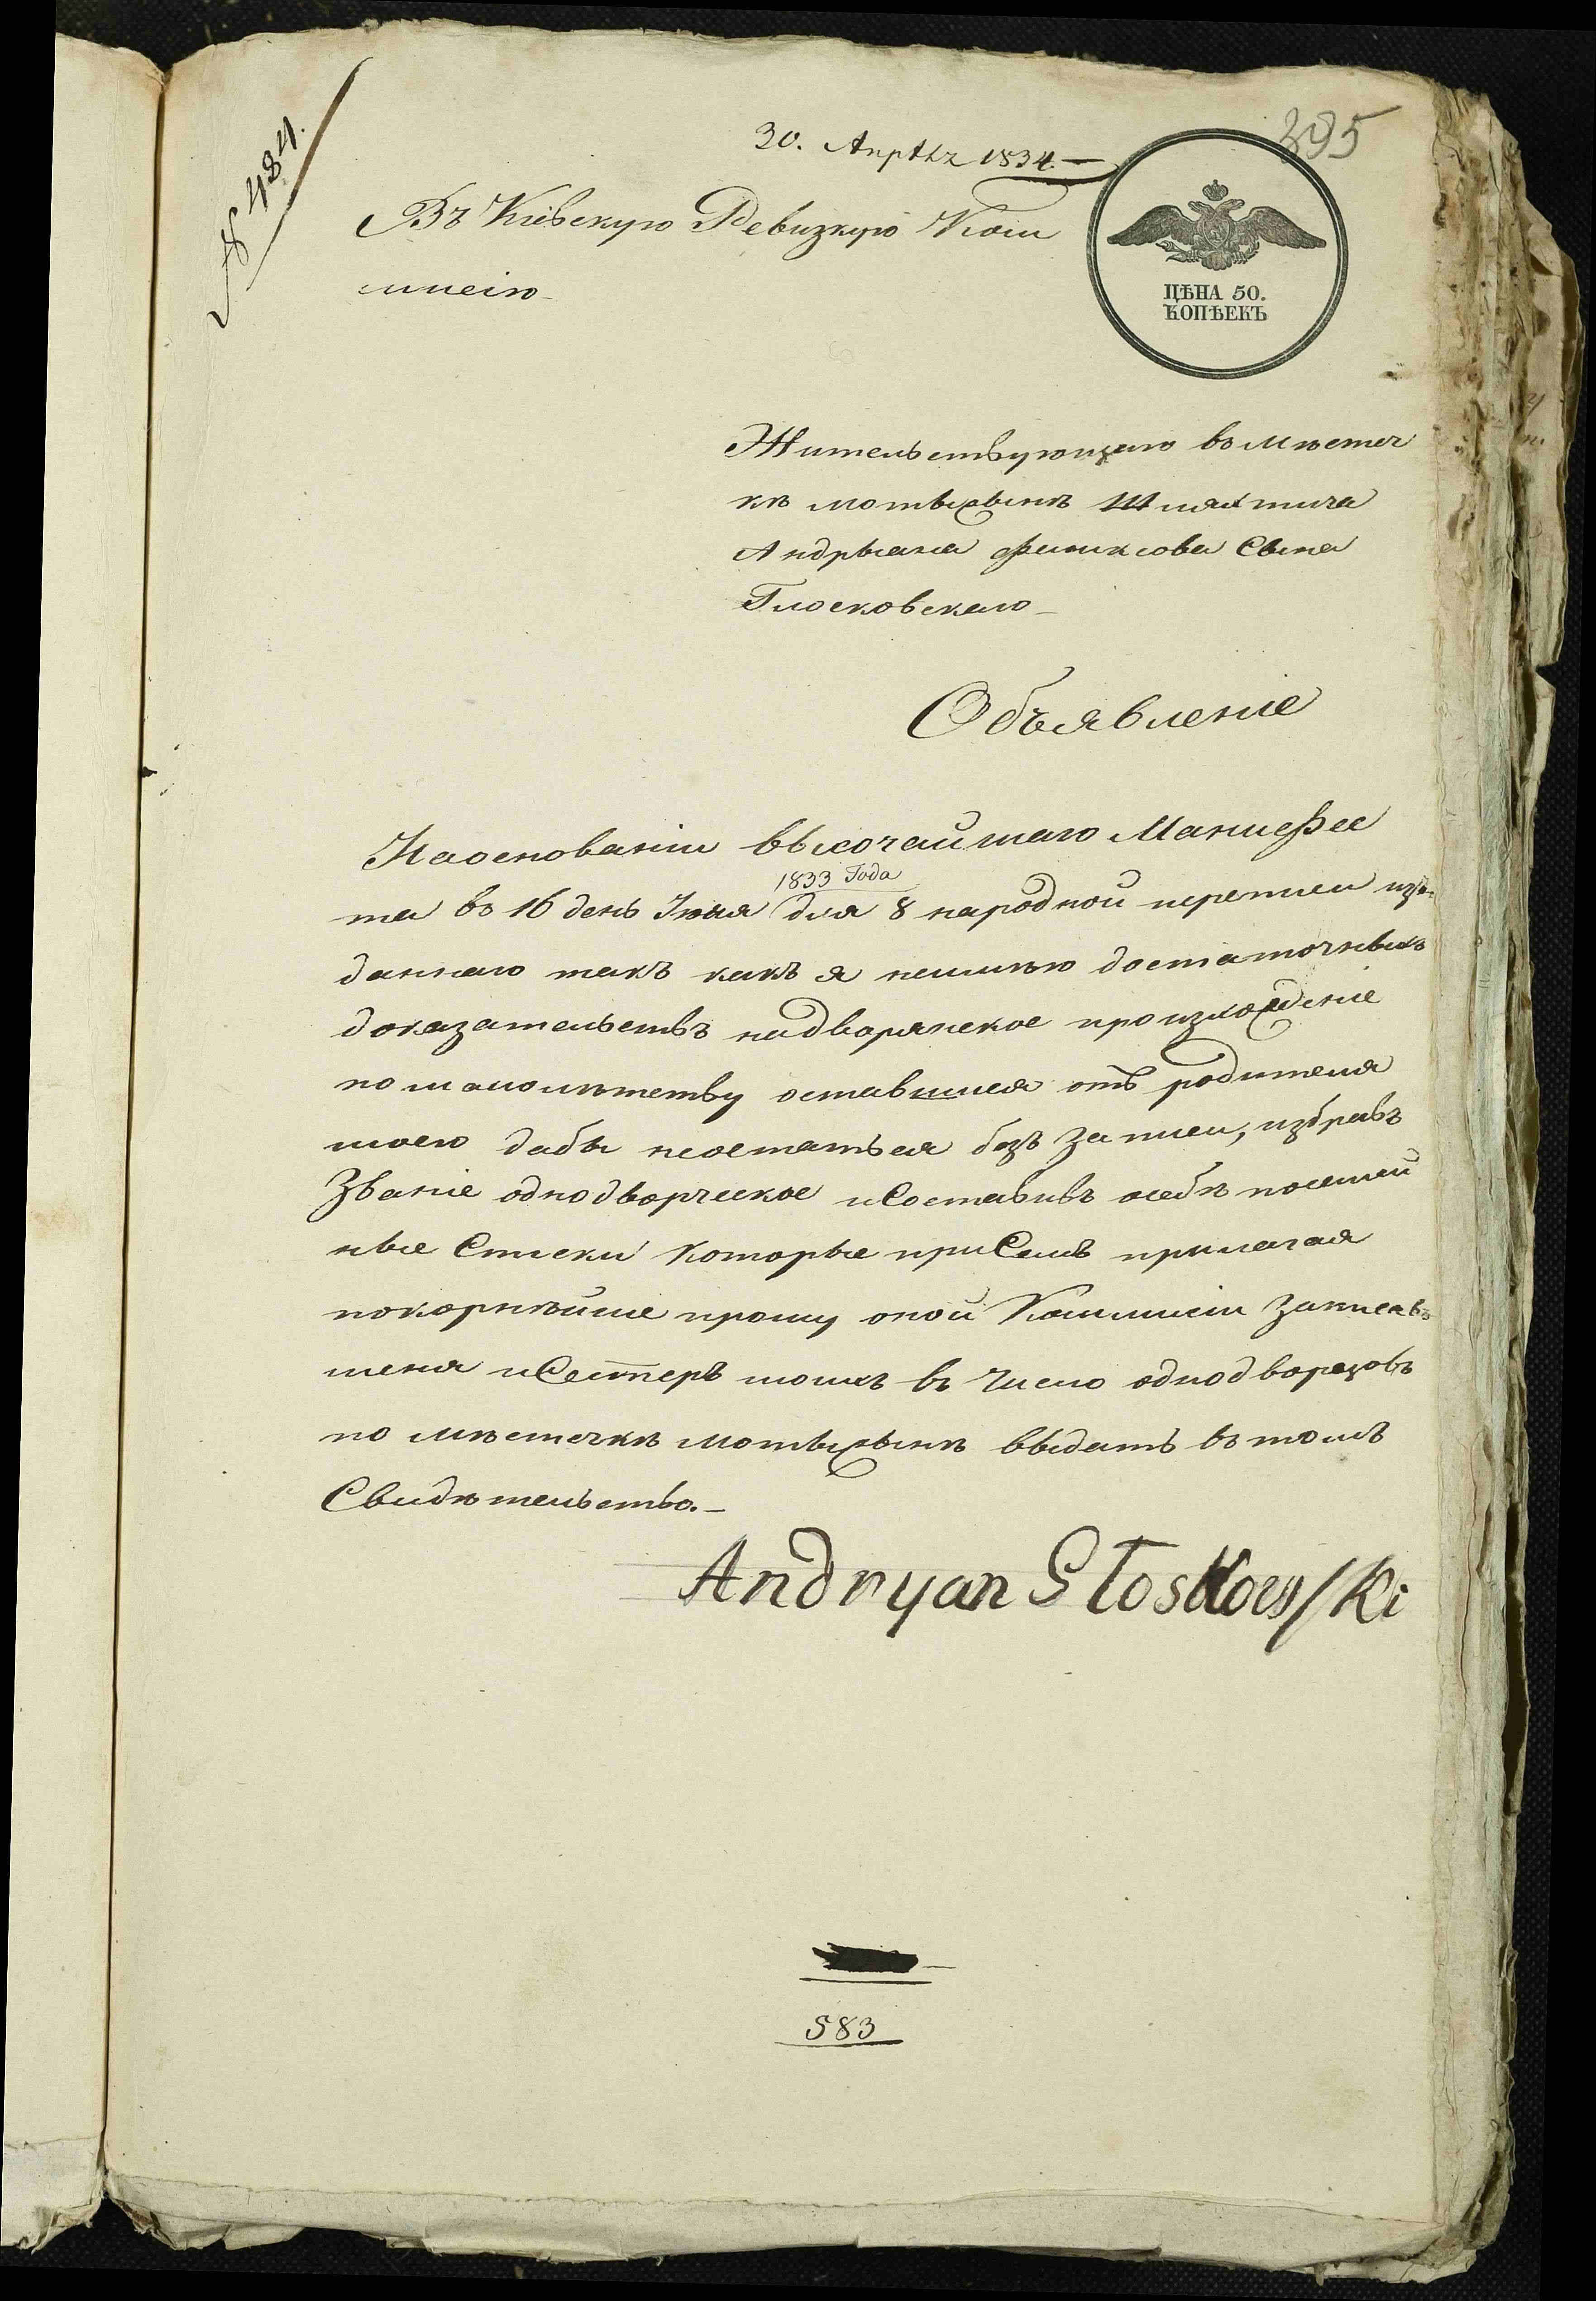 № 484.
395
30. Апрѣлѧ 1834.—
ЦѢНА 50.
КОПѢЕКЪ
Въ Кіевскую Ревизкую Ком
мисію
Жительствующаго въ мѣстеч
кѣ мотыжынѣ Шляхтича
Андрыана Филиксова Сына
Глосковскаго
Объявленіе
На основаніи высочайшаго Манифес
1833 Года
та въ 16 день Іюня для 8 народной переписи из-
даннаго такъ какъ я неимѣю достаточныхъ
доказательствъ надворянское произхожденіе
по малолѣтству оставшися отъ родителя
моего дабы неостаться безъ записи, избравъ
Званіе однодворческое иСоставивъ осебѣ посемей
ные Списки которые приСемъ прилагая
покорнѣйше прошу оной Коммисіи записавъ
меня иСестеръ моихъ въ Число однодворцовъ
по мѣстечкѣ мотыжынѣ выдать въ томъ
Свидѣтельство.—
Andryan Głoskowski
583